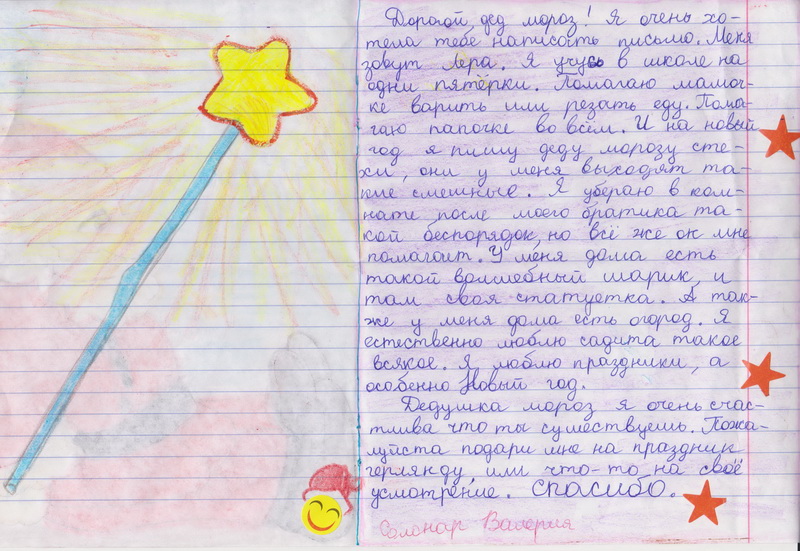 Дорогой, дед мороз! Я очень хо-
тела тебе написать письмо. Меня
зовут Лера. Я учусь в школе на
одни пятёрки. Помагаю мамоч-
ке варить или резать еду. Пома-
гаю папочке во всём. И на новый
год я пишу деду морозу сте-
хи, они у меня выходят та-
кие смешные. Я убераю в ком-
нате после моего братика та-
кой беспорядок, но всё же он мне
помагоит. У меня дома есть
такой волшебный шарик, и
там своя статуетка. А так-
же у меня дома есть огород. Я
естественно люблю садита такое
всякое. Я люблю праздники, а
особенно Новый год.
Дедушка мороз я очень счас-
тлива что ты сумествуешь. Пожа-
луйста подари мне на праздник
герлянду, или что-то на своё
усмотрение. Спасибо.
Солонар Валерия